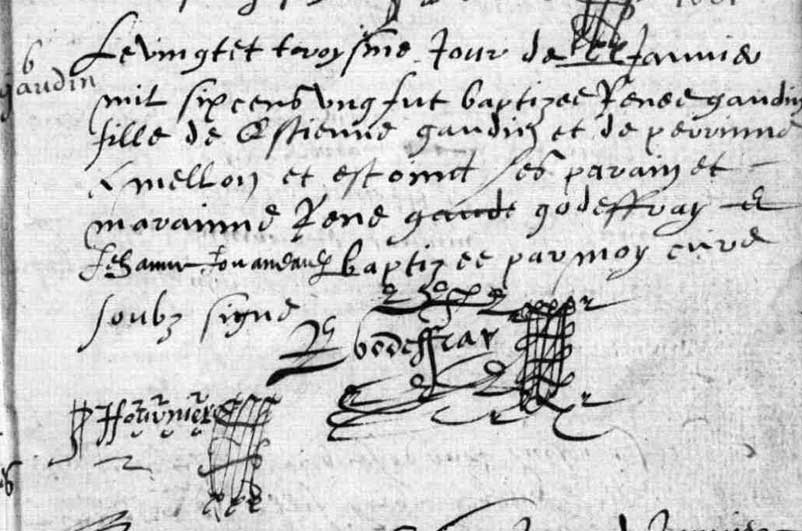 b
gaudin
Le vingt et troysme Jour de Janvier
mil six cens ung fut baptizee Renee gaudin
fille de Estienne gaudin et de perrinne
Amellon et estoint ses parain et
marainne Rene godeffray et
Jehanne baptizee par moy curé
soubz signé
R godeffray
P Fournier